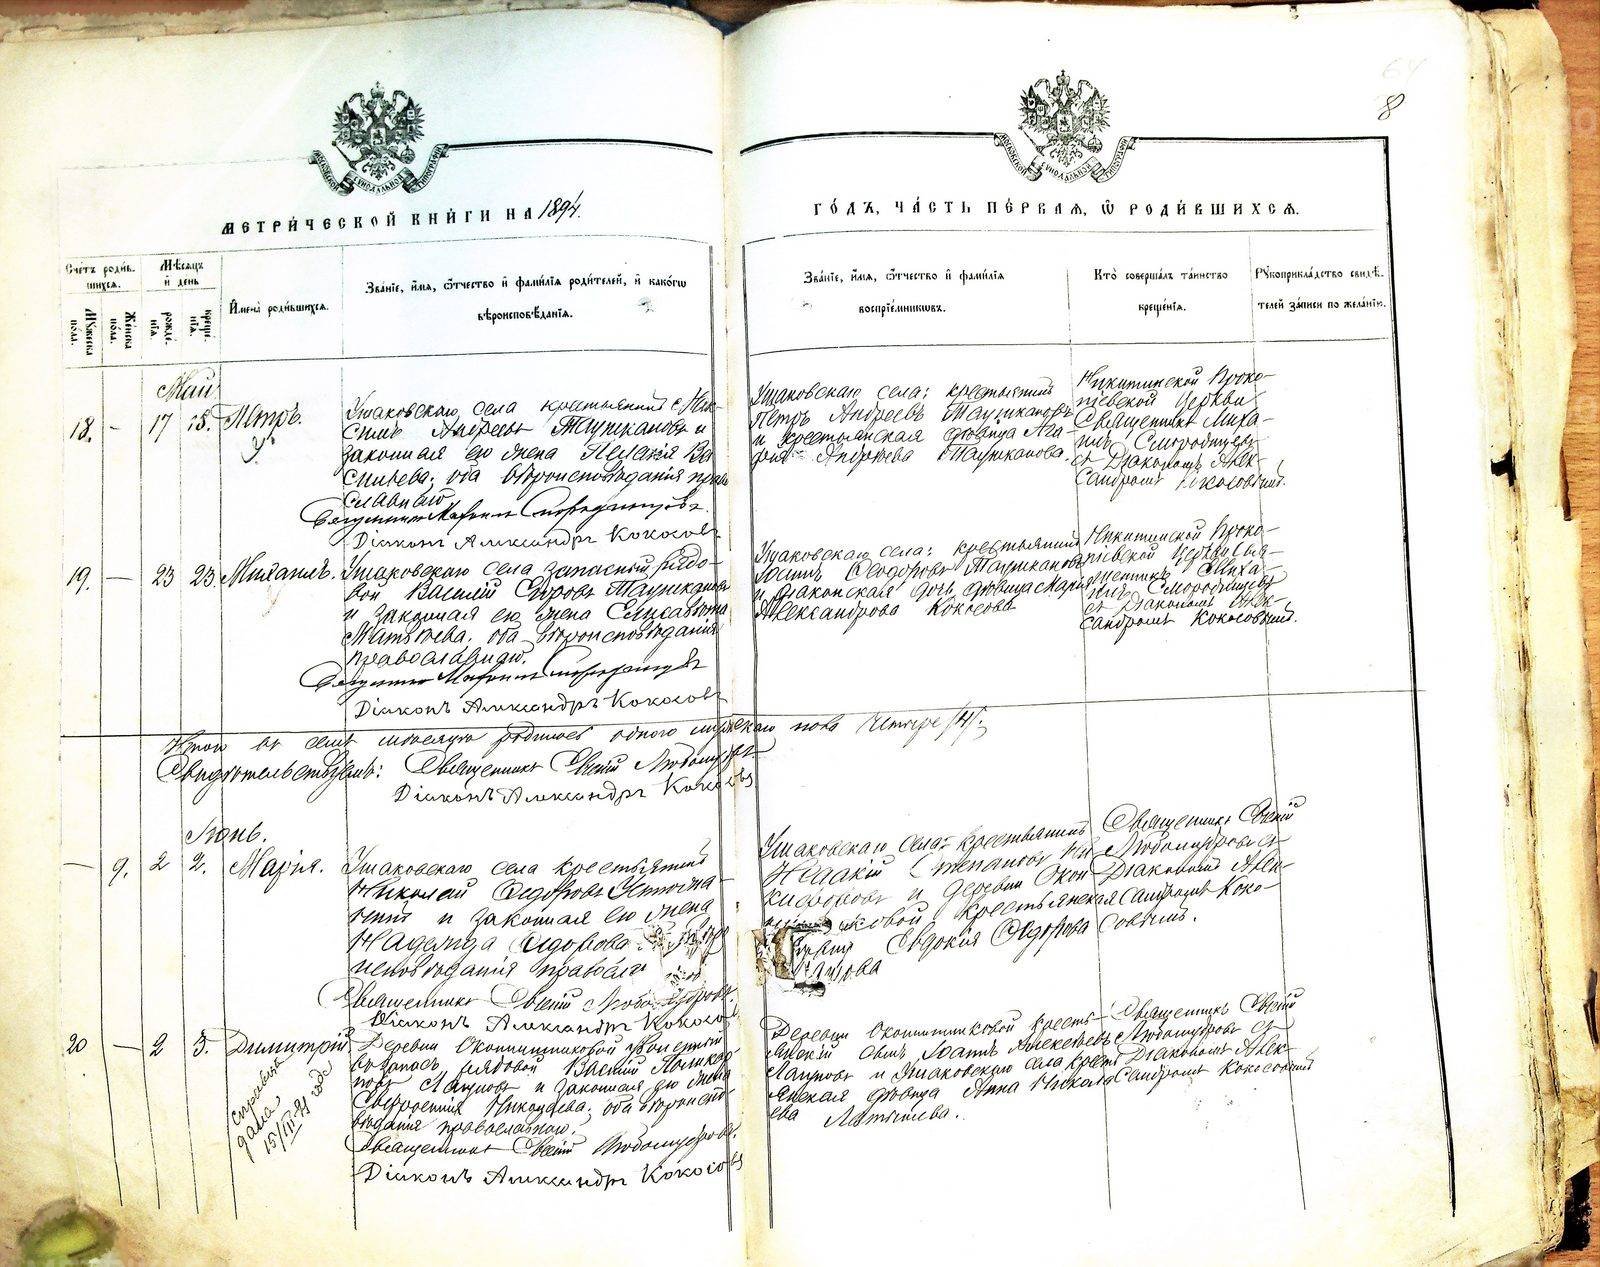 64
8
МОСКОВСКОЙ СѴНОДАЛЬНОЙ ТИПОГРАФІИ
МОСКОВСКОЙ СѴНОДАЛЬНОЙ ТИПОГРАФІИ
МЕТРИ́ЧЕСКОЙ КНИ́ГИ НА 1894.
ГО́ДЪ, ЧА́СТЬ ПЕ́РВАЯ, Ѽ РОДИ́ВШИХСѦ.
Сче́тъ роди́в-
шихсѧ.
Мѣсѧцъ
и҆ день
Мꙋжеска
по́ла.
Же́нска
по́ла.
рожде́-
нїѧ
креще́-
нїѧ.
И҆мена̀ роди́вшихсѧ.
Зва́нїе, и҆́мѧ, ѻ҆́тчество и҆ фами́лїѧ роди́телей, и҆ како́гѡ
вѣроисповѣ́данїѧ.
Зва́нїе, и҆́мѧ, ѻ҆́тчество и҆ фами́лїѧ
воспрїе́мникѡвъ.
Кто̀ соверша́лъ та́инство
креще́нїѧ.
Рꙋкоприкла́дство свидѣ́-
телей за́писи по жела́нїю.
Май
18. — 17 18. Петръ.
Ушаковскаго села крестьянинъ Мак-
симъ Андреевъ Таушкановъ и
законная его жена Пелагія Ва-
сильева; оба вѣроисповѣданія право
славнаго
Діаконъ Александръ Кокосовъ
Ушаковскаго села: крестьянинъ
Петръ Андреевъ Таушкановъ
и крестьянская дѣвица Ага-
фія Андреева Таушканова.
Никитинской Проко-
піевской Церкви
Священникъ Миха-
илъ Смородинцевъ
съ Діакономъ Алек-
сандромъ Кокосовымъ.
19. — 23 23. Михаилъ.
Ушаковскаго села запасный рядо-
вой Василій Егоровъ Таушкановъ
и законная его жена Елисавета
Матвѣева. оба вѣроисповѣданія
православнаго.
Діаконъ Александръ Кокосовъ
Ушаковскаго села: крестьянинъ
Іоаннъ Ѳеодоровъ Таушкановъ
и діаконская дочь дѣвица Марія
Александрова Кокосова
Никитинской Проко-
піевской Церкви Свя-
щенникъ Миха-
илъ Смородинцевъ
съ Діакономъ Алек-
сандромъ Кокосовымъ.
Итого въ семъ мѣсяцѣ родилось одного мужескаго пола четыре /4/.
Свидѣтельствуемъ: Священникъ Евгеній Любомудровъ
Діаконъ Александръ Кокосовъ
Іюнь.
— 9. 2 2. Марія.
Ушаковскаго села крестьянинъ
Николай Ѳедоровъ
и законная его жена
Надежда
исповѣданія правосла
Священникъ Евгеній Любомудровъ.
Діаконъ Александръ Кокосовъ
Ушаковскаго села: крестьянинъ
Степановъ
и деревни
крестьянская
Евдокія Ѳедорова
Священникъ Евгеній
Любомудровъ съ
Діакономъ Алек-
сандромъ Коко-
совымъ.
20 — 2 3. Димитрій
справка
дана
15/III-91 года
Деревни Окопишниковой
въ запасъ рядовой Василій
Лагуновъ и законная его жена
Николаева; оба вѣроиспо-
вѣданія православнаго.
Священникъ Евгеній Любомудровъ.
Діаконъ Александръ Кокосовъ
Деревни Окопишниковой кресть-
янскій сынъ Іоаннъ Алексѣевъ
Лагуновъ и Ушаковскаго села крест
янская дѣвица Анна Никола
ева Латышева.
Священникъ Евгеній
Любомудровъ съ
Діакономъ Алек-
сандромъ Кокосовымъ